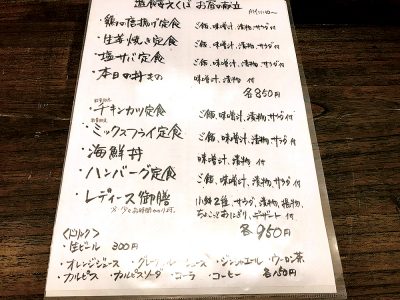 お昼の献立
・鶏の唐揚げ定食 ご飯、味噌汁、漬物、サラダ付
・生姜焼き定食 ご飯、味噌汁、漬物、サラダ付
・塩サバ定食 ご飯、味噌汁、漬物、サラダ付
・本日の丼もの 味噌汁、漬物 付
各850円
・チキンカツ定食 ご飯、味噌汁、漬物、サラダ付
・ミックスフライ定食 ご飯、味噌汁、漬物、サラダ付
・海鮮丼 味噌汁、漬物 付
・ハンバーグ定食 ご飯、味噌汁、漬物、サラダ付
・レディース御膳 小鉢2種、サラダ、漬物、揚物、
ちょこっとおにぎり、デザート付
各950円
〈ドリンク〉
・生ビール 300円
・オレンジジュース ・グレープフルーツジュース ・ジンジャエール ・ウーロン茶
・カルピス ・カルピスソーダ ・コーラ ・コーヒー 各150円